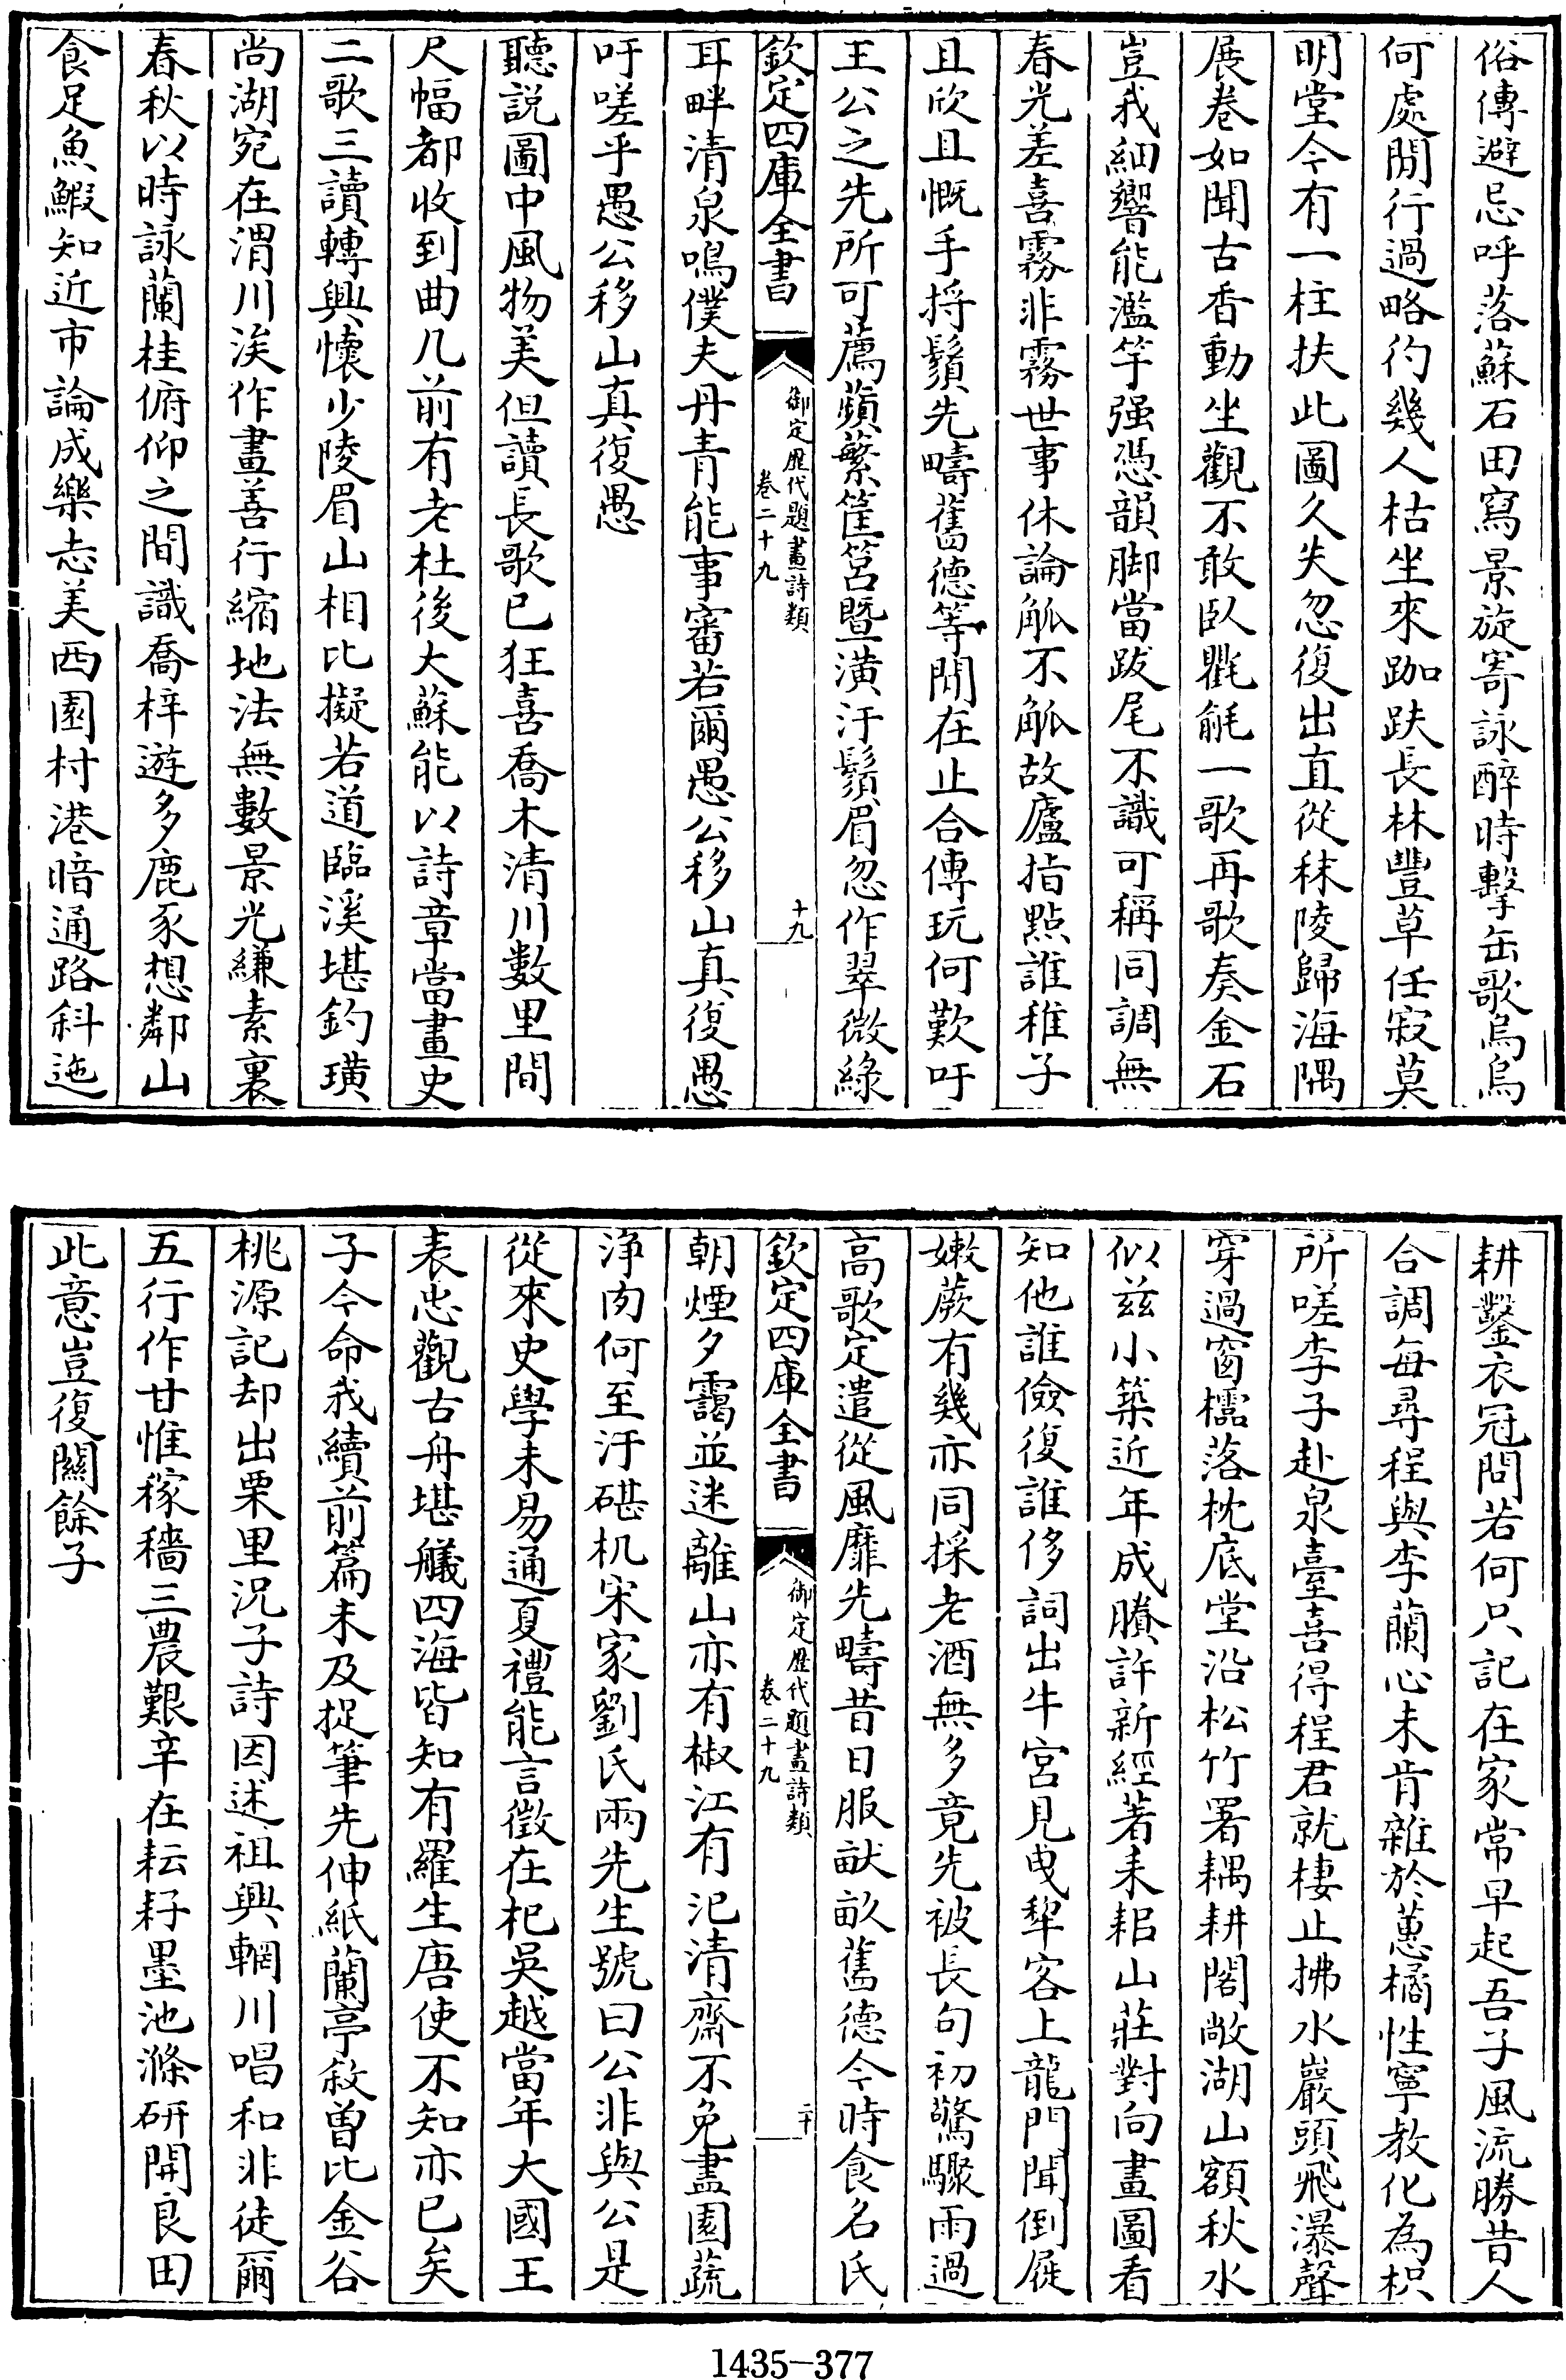 俗傳避忌呼落蘇石田寫景旋寄詠醉時擊缶歌烏烏
何處閒行過略彴幾人枯坐來跏趺長林豐草任寂莫
明堂今有一柱扶此圖久失忽復出直從秣陵歸海隅
展巻如聞古香動坐觀不敢臥氍毹一歌再歌奏金石
豈我細響能濫竽强憑韻脚當跋尾不識可稱同調無
春光差喜霧非霧世事休論觚不觚故廬指點誰稚子
且欣且慨手捋鬚先疇舊德等閒在止合傳玩何歎吁
王公之先所可薦蘋蘩筐筥暨潢汙鬚眉忽作翠微綠
欽定四庫全書
御定歴代題畫詩類
卷二十九
十九
耳畔清泉鳴僕夫丹青能事審若爾愚公移山真復愚
吁嗟乎愚公移山真復愚
聽説圖中風物美但讀長歌已狂喜喬木清川數里間
尺幅都收到曲几前有老杜後大蘇能以詩章當畫史
二歌三讀轉興懷少陵眉山相比擬若道臨溪堪釣璜
尚湖宛在渭川涘作畫善行縮地法無數景光縑素裏
春秋以時詠蘭桂俯仰之間識喬梓遊多鹿豕想鄰山
食足魚鰕知近市論成樂志美西園村港暗通路斜迤
耕鑿衣冠問若何只記在家常早起吾子風流勝昔人
合調每尋程與李蘭心未肯雜於蕙橘性寧教化為枳
所嗟李子赴泉臺喜得程君就棲止拂水巖頭飛瀑聲
穿過窗櫺落枕底堂沿松竹署耦耕閣敞湖山額秋水
似兹小築近年成賸許新經著耒耜山莊對向畫圖看
知他誰儉復誰侈詞出牛宮見曳犂客上龍門聞倒屣
嫩蕨有幾亦同採老酒無多竟先被長句初驚驟雨過
高歌定遣從風靡先疇昔日服畎畝舊德今時食名氏
欽定四庫全書
御定歴代題畫詩類
卷二十九
二十
朝煙夕靄並迷離山亦有椒江有汜清齋不免盡園蔬
浄肉何至汙碪机宋家劉氏兩先生號曰公非與公是
從來史學未易通夏禮能言徵在杞吳越當年大國王
表忠觀古舟堪艤四海皆知有羅生唐使不知亦已矣
子今命我續前篇未及捉筆先伸紙蘭亭敘曽比金谷
桃源記却出栗里況子詩因述祖興輞川唱和非徒爾
五行作甘惟稼穡三農艱辛在耘耔墨池滌研開良田
此意豈復關餘子
1435-377